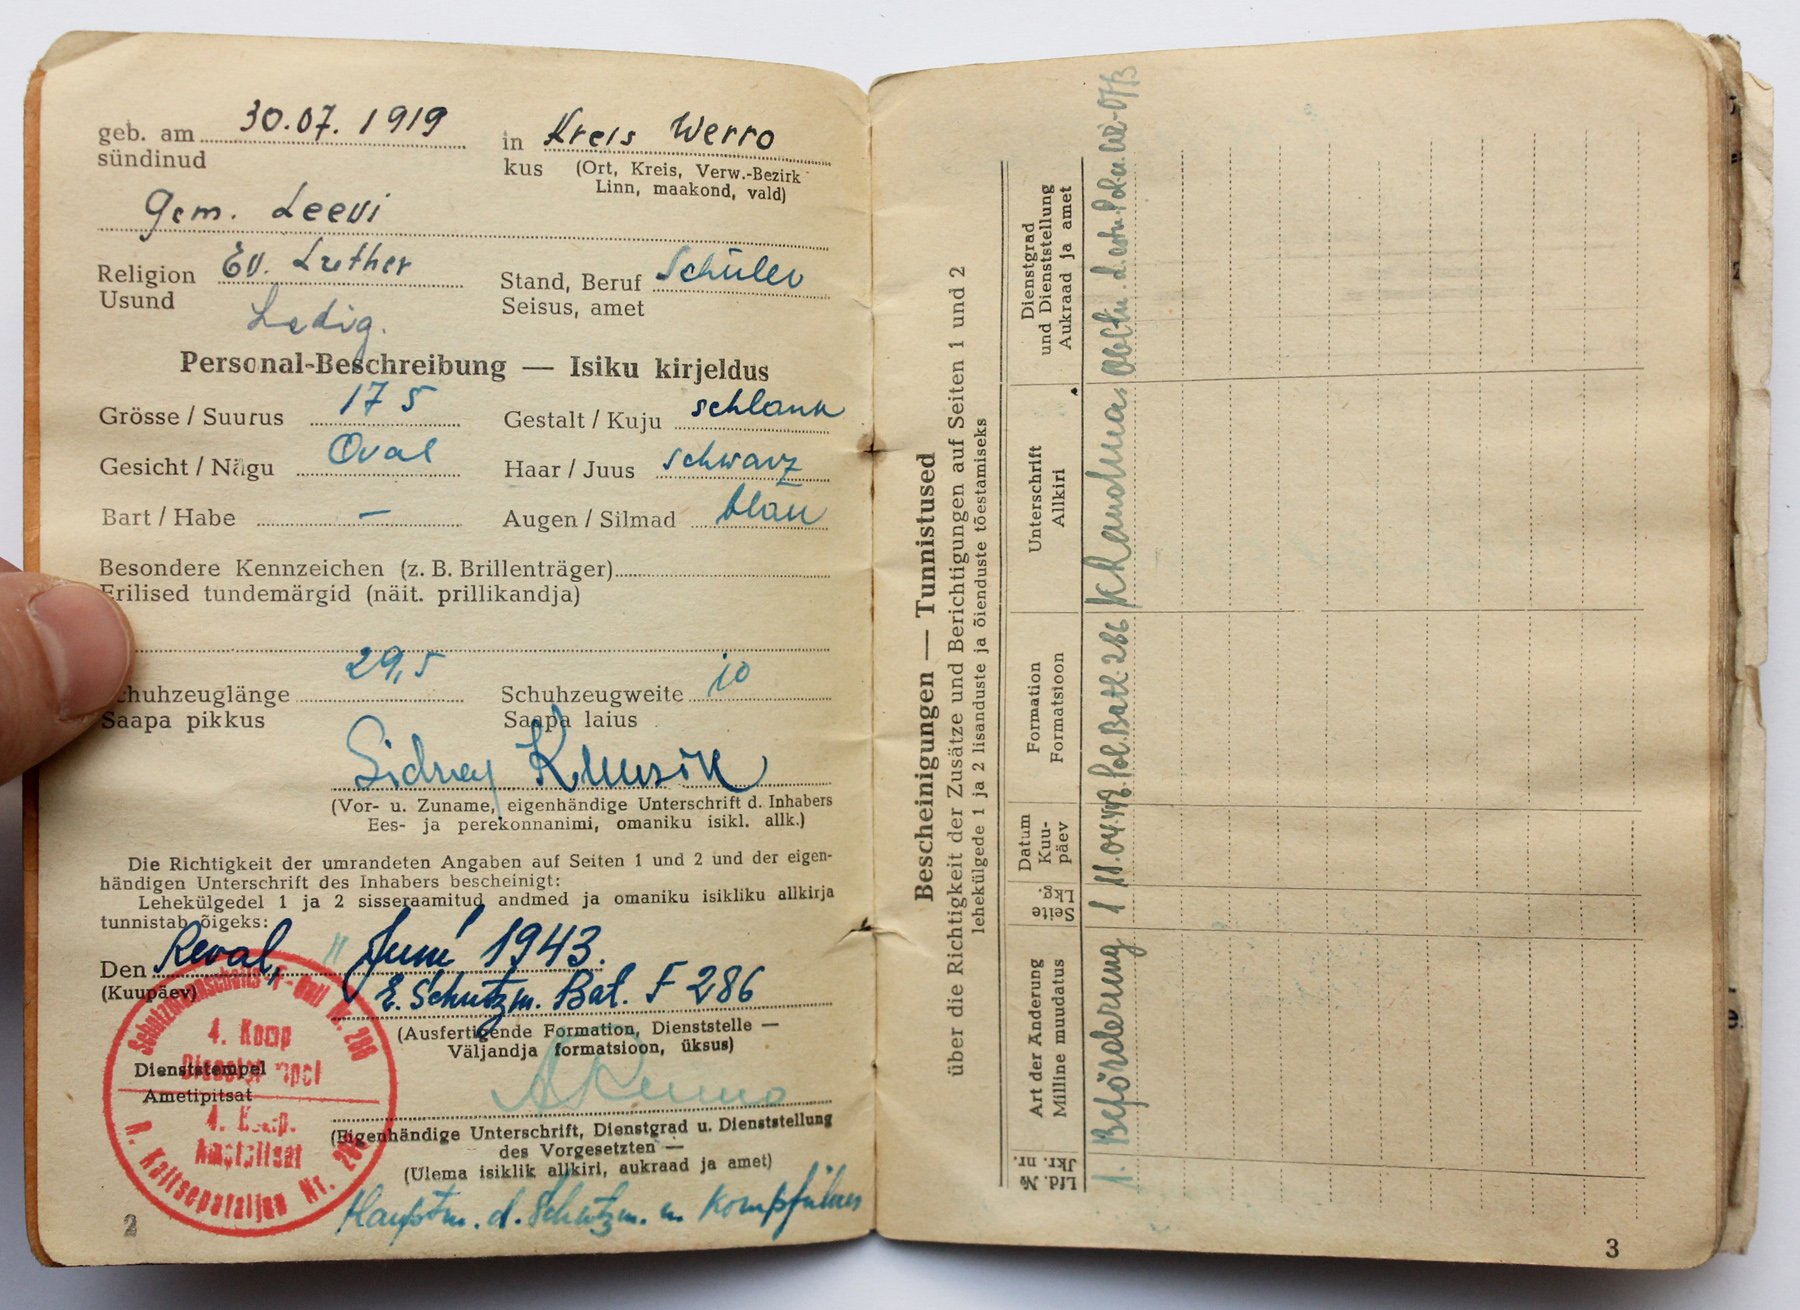 geb. am 30.07.1919 in Kreis Werro
sündinud kus (Ort, Kreis, Verw.-Bezirk
Linn, maakond, vald)
Gem. Leevi
Religion Ev. Luther Stand, Beruf Schüler
Usund Seisus, amet
Ledig.
Personal-Beschreibung — Isiku kirjeldus
Grösse / Suurus 175 Gestalt / Kuju schlank
Gesicht / Nägu Oval Haar / Juus schwarz
Bart / Habe — Augen / Silmad blau
Besondere Kennzeichen (z. B. Brillenträger)
Erilised tundemärgid (näit. prillikandja)
Schuhzeuglänge 29,5 Schuhzeugweite 10
Saapa pikkus Saapa laius
Sidney
(Vor- u. Zuname, eigenhändige Unterschrift d. Inhabers
Ees- ja perekonnanimi, omaniku isikl. allk.)
Die Richtigkeit der umrandeten Angaben auf Seiten 1 und 2 und der eigen-
händigen Unterschrift des Inhabers bescheinigt:
Lehekülgedel 1 ja 2 sisseraamitud andmed ja omaniku isikliku allkirja
tunnistab õigeks:
Den Reval, " Juni 1943.
(Kuupäev) E. Schutzm. Bat. F 286
(Ausfertigende Formation, Dienststelle —
Väljandja formatsioon, üksus)
Dienststempel
Ametipitsat
4. Komp
Dienststempel
4. Komp.
Ametpitsat
R. Kaitsepataljon Nr. 286
(Eigenhändige Unterschrift, Dienstgrad u. Dienststellung
des Vorgesetzten —
(Ülema isiklik allkiri, aukraad ja amet)
Hauptm. d. Schutzm. u. Kompführer
2
Bescheinigungen — Tunnistused
über die Richtigkeit der Zusätze und Berichtigungen auf Seiten 1 und 2
lehekülgede 1 ja 2 lisanduste ja õienduste tõestamiseks
Lfd. № Jkr. nr.
Art der Änderung Milline muudatus
Seite Lkg.
Datum Kuu- päev
Formation Formatsioon
Unterschrift Allkiri
Dienstgrad und Dienststellung Aukraad ja amet
1. Beförderung 1 11.04.44 Pol. Batl. 286
3